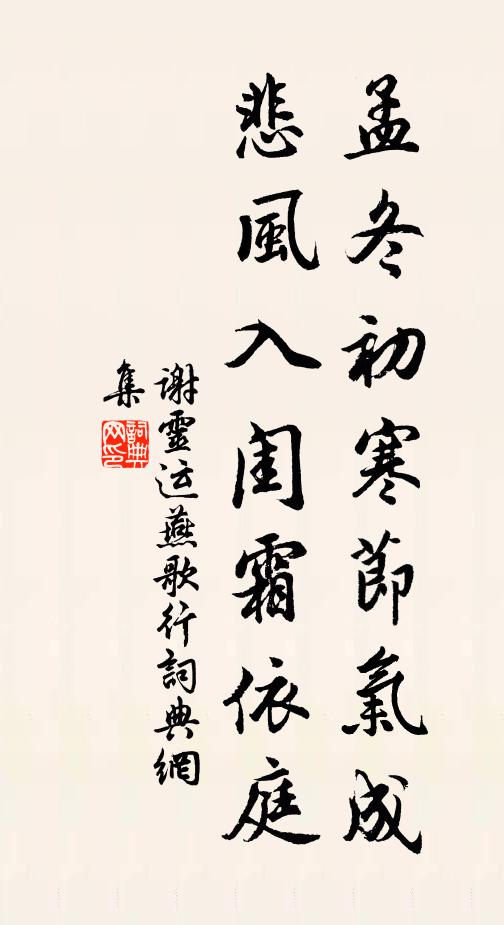 孟冬初寒節氣成
悲風入闺霜依庭
謝靈运燕歌行詞典網
集
詞典网印